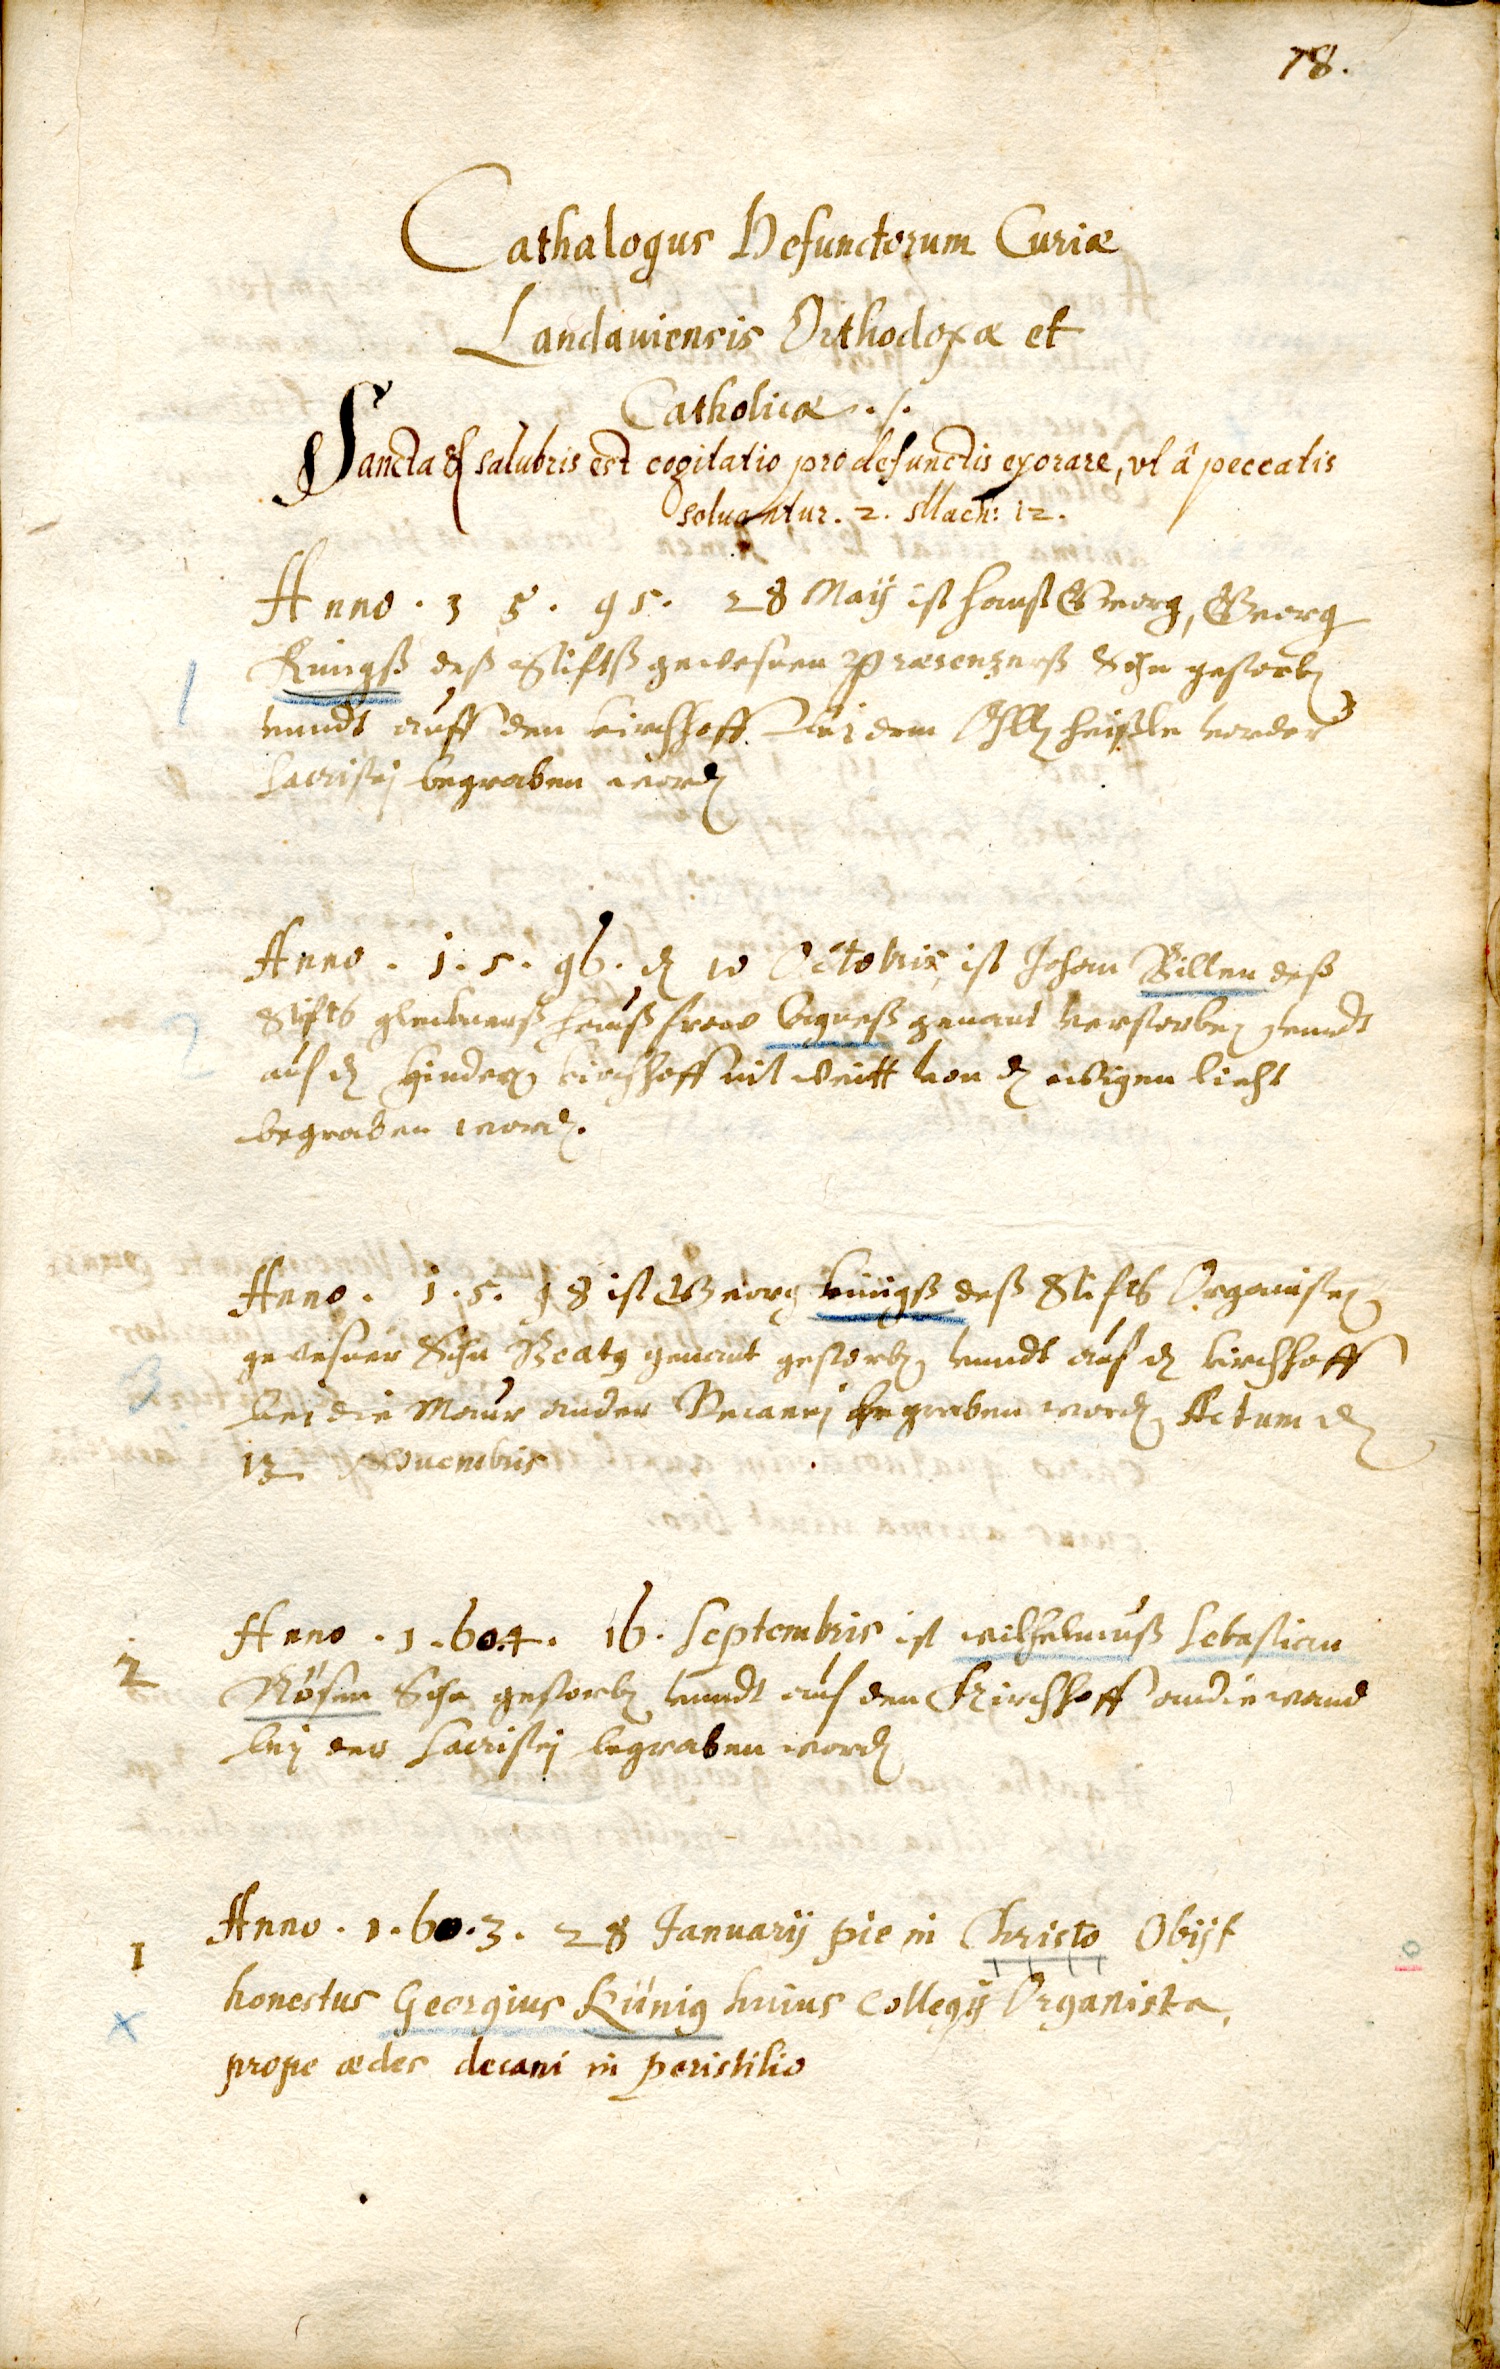 78.
Cathalogus Defunctorum Curiæ
Landauiensis Orthodoxæ et
Catholicæ ./.
Sancta & salubris est cogitatio pro defunctis exorare, vt â peccatis
soluantur. 2. Mach: 12.
Anno . 1 5 . 95. 28 Maij ist Hanß Georg, Georg
Künigß deß Stiffts gewesnen Præsenzerß Sohn gestorbē
vnndt auff den kirchhoff bej dem heißle vorder
Sacristej begraben wordē
Anno . 1 . 5 . 96 . dē 10 Octobris, ist Johan Billen deß
Stiffts glecknerß haußfraw Agneß genant verstorbē vnndt
auf dē hinderē kirchhoff nit weitt von dē ewigen liecht
begraben wordē.
Anno . 1 . 5 . 98 ist Georg künigß deß Stiffts Organistē
gewesner Sohn Beatq genant gestorbē vnndt auf dē kirchhoff
bej die Maur ander Decanej begraben wordē Actum dē
13 Nouembris
1
2
3
Anno . 1 . 604 . 16 . Septembris ist wilhelmuß Sebastian
Rösen Sohn gestorbē vnndt auf den Kirchhoff an die wand
bej der Sacristej begraben wordē
2
Anno . 1 . 60 . 3 . 28 Januarij pie in Christo Obijt
1
honestus Georgius Künig huius Collegij Organista,
x
prope ædes decani in peristilio